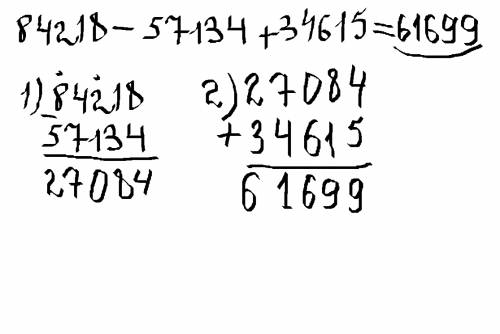 84218 - 57134 + 34615 = 61699
1) 84218
- 57134
27084
2) 27084
+ 34615
61699